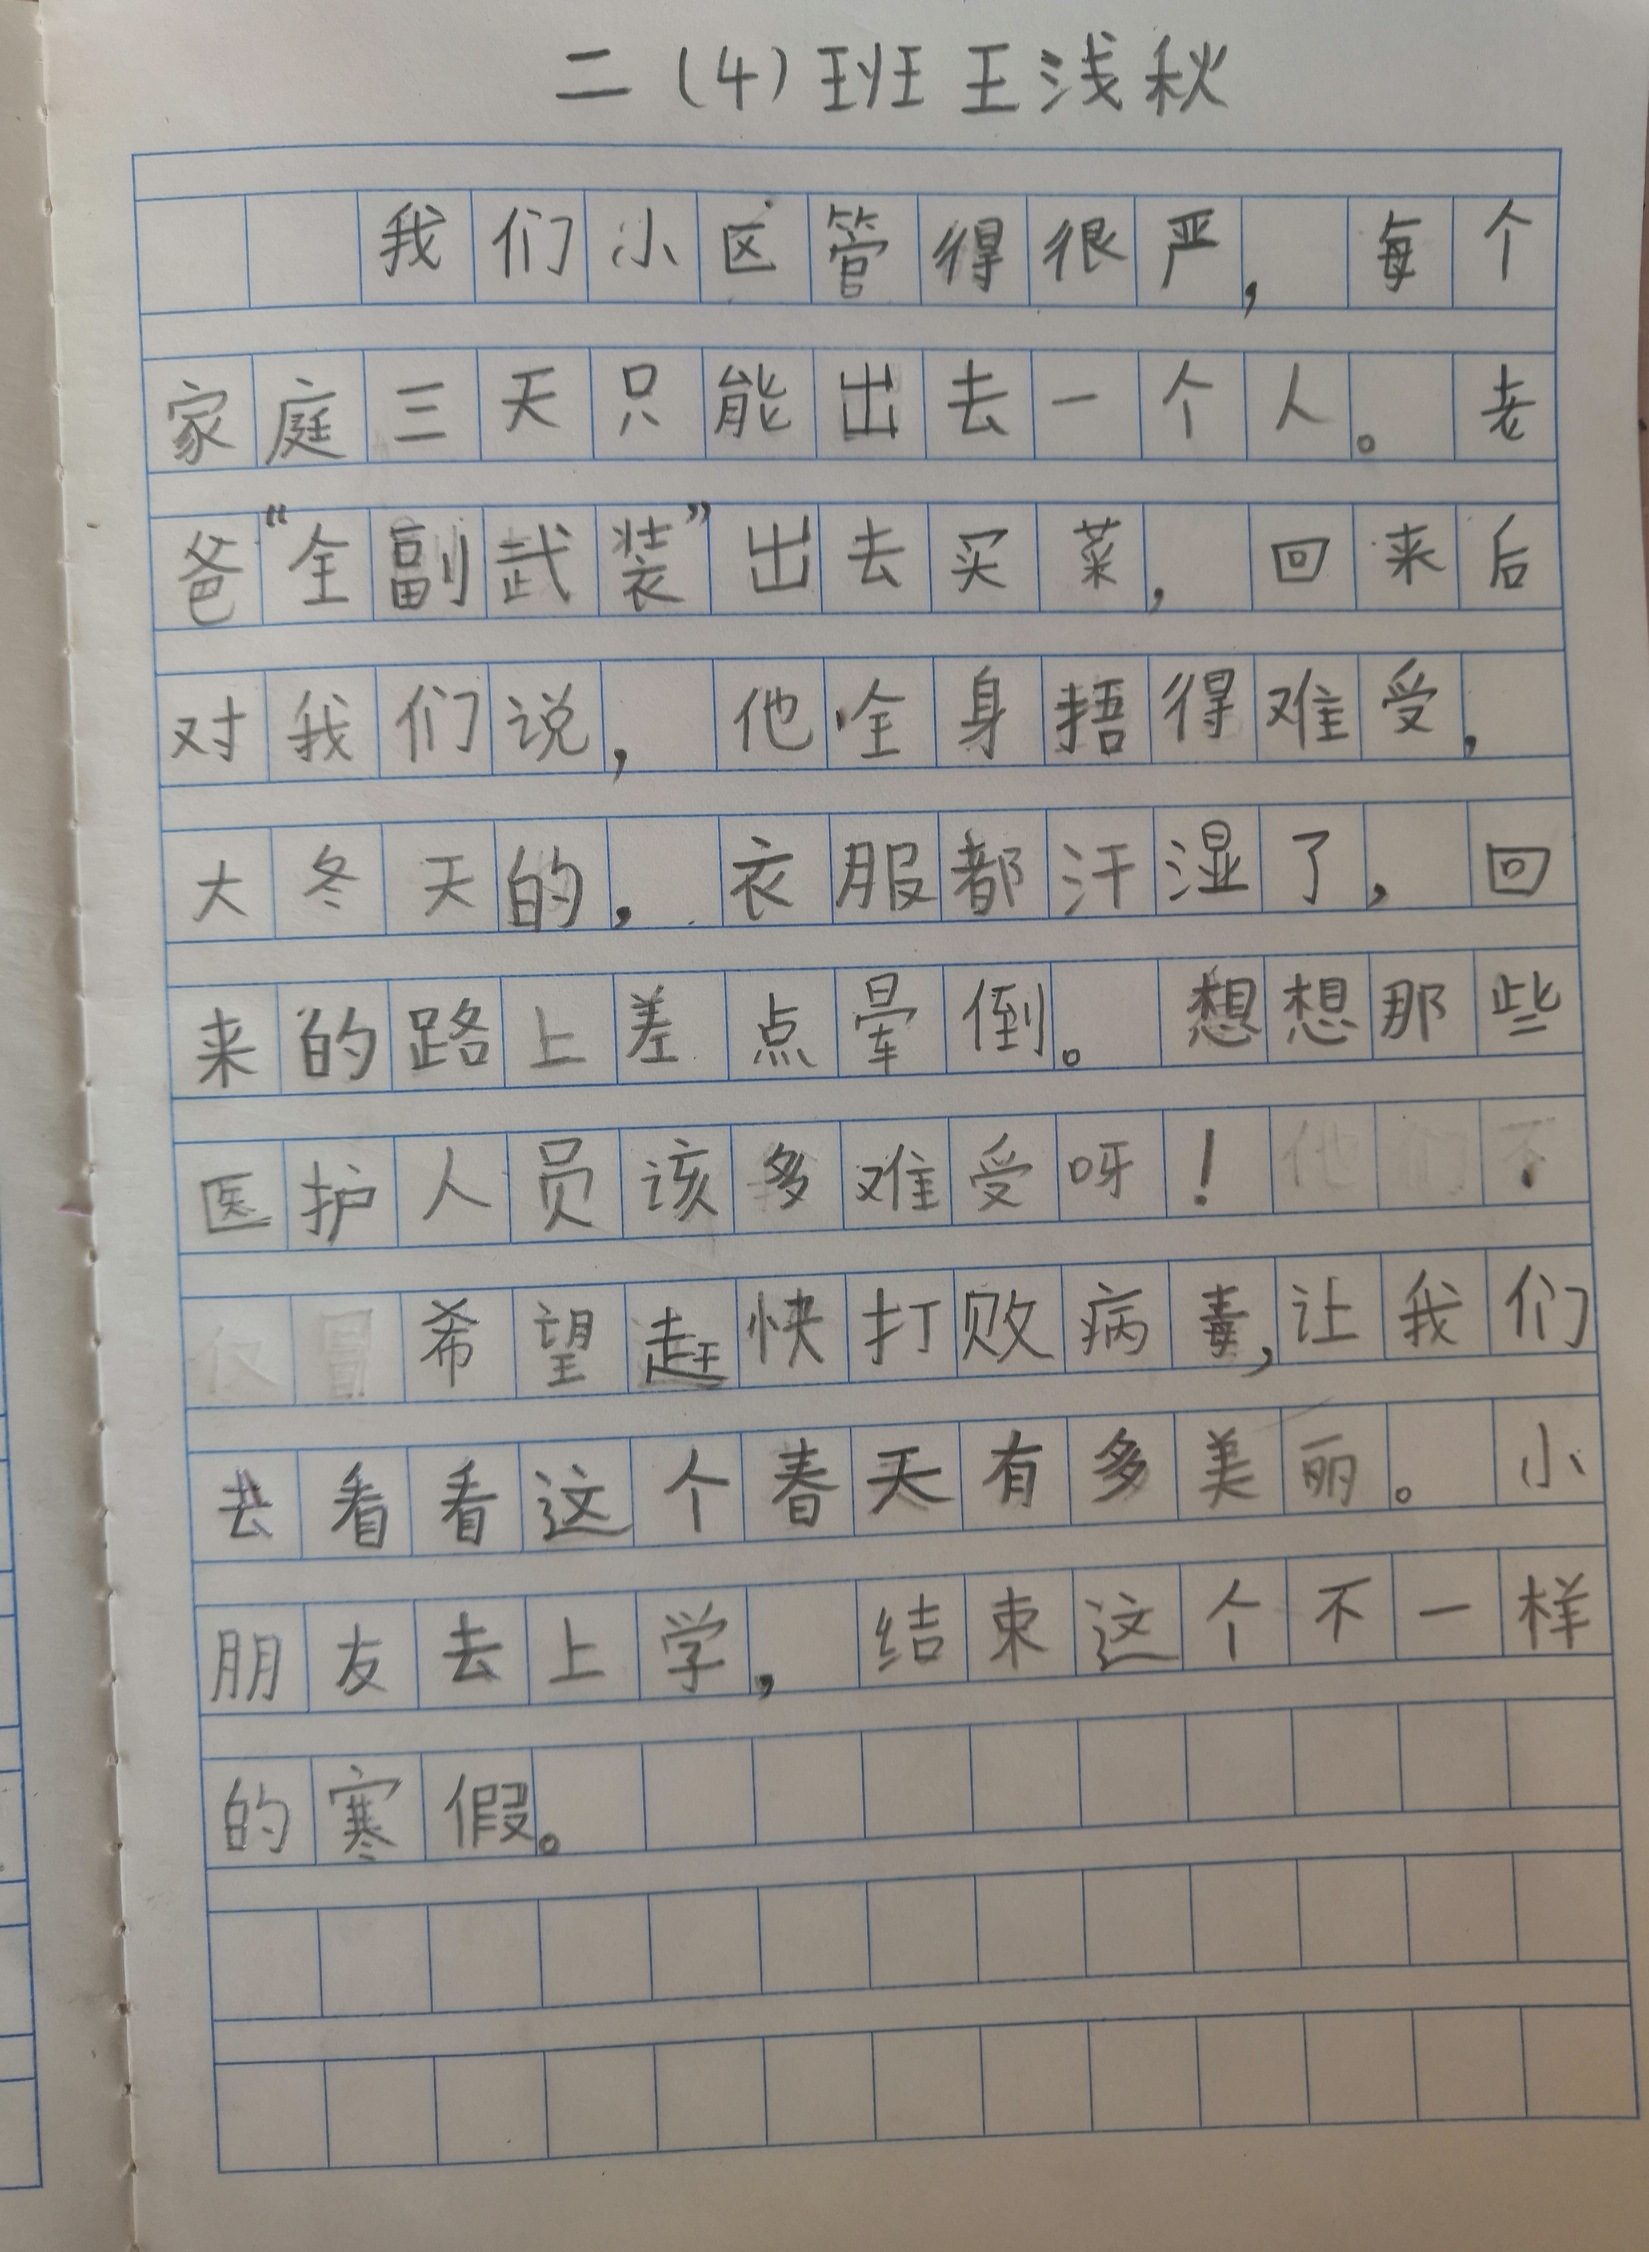 二(4)班王浅秋
我们小区管得很严，每个
家庭三天只能出去一个人。老
爸“全副武装”出去买菜，回来后
对我们说，他全身捂得难受，
大冬天的，衣服都汗湿了，回
来的路上差点晕倒。想想那些
医护人员该多难受呀！
希望赶快打败病毒，让我们
去看看这个春天有多美丽。小
朋友去上学，结束这个不一样
的寒假。